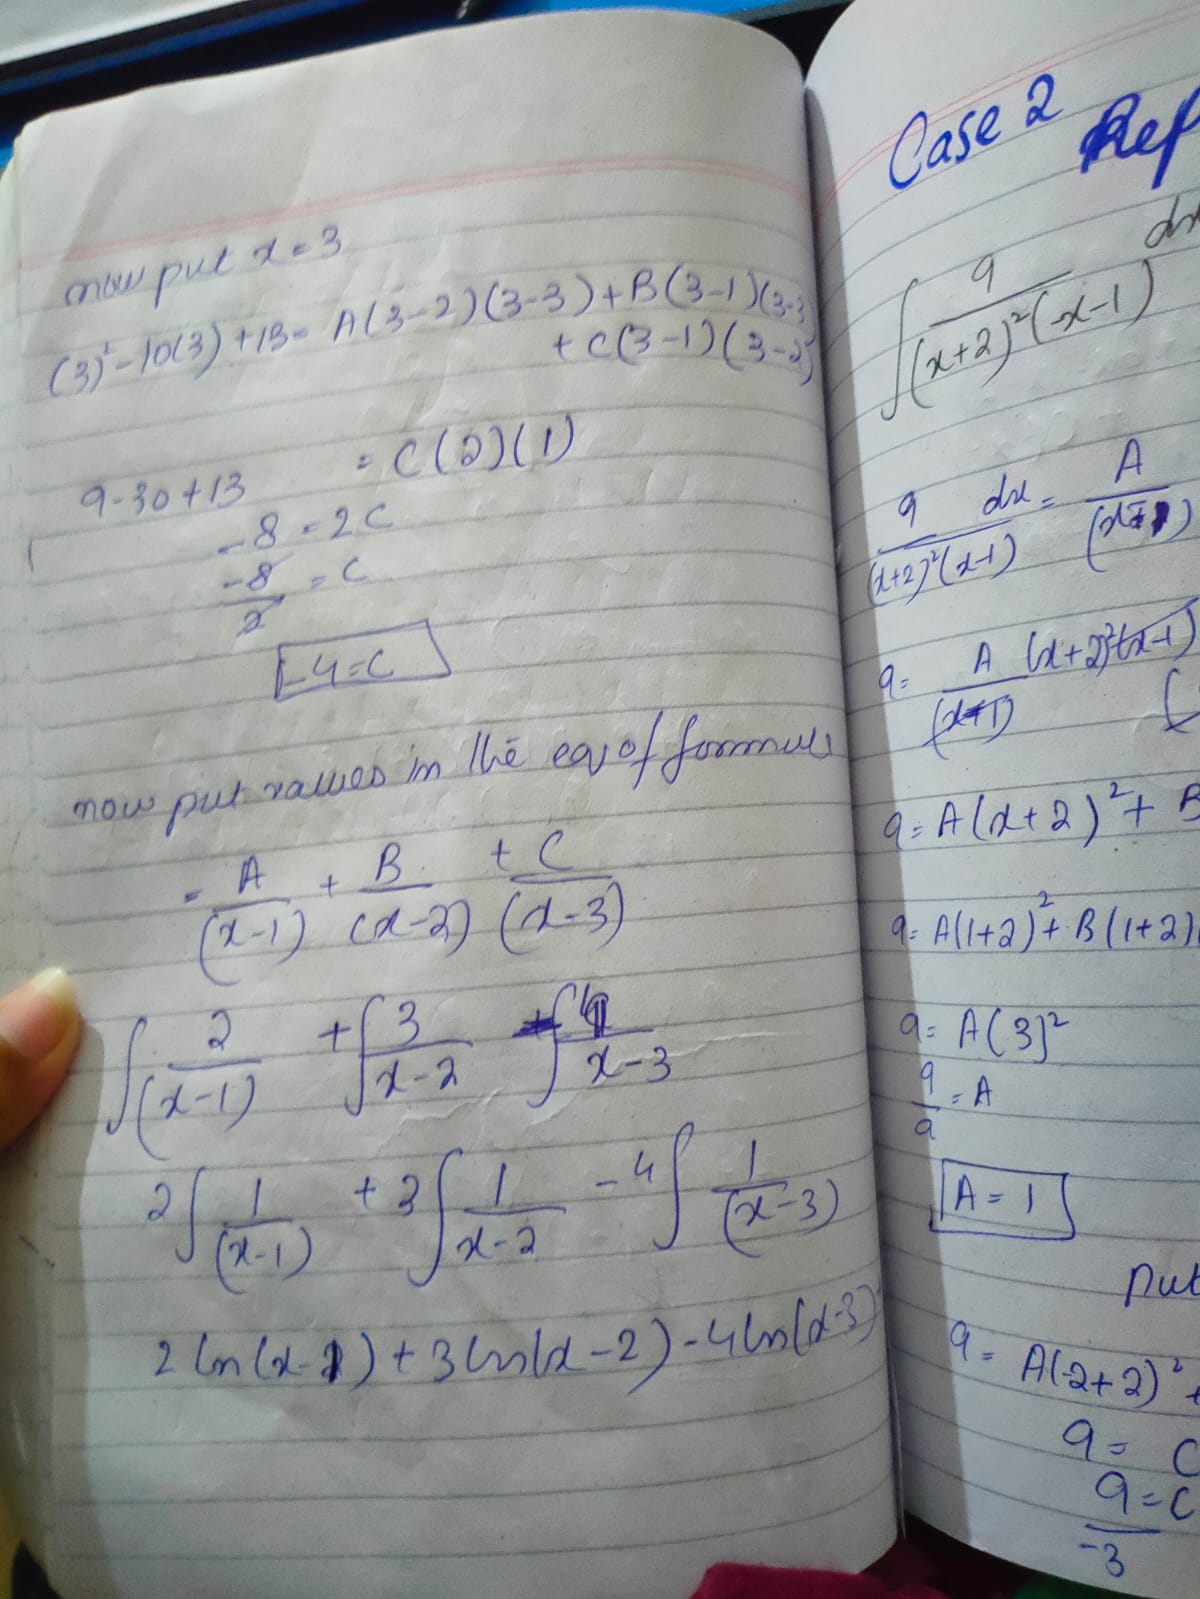 now put x = 3
(3)² - 10(3) + 13 = A(3-2)(3-3) + B(3-1)(3-3
+ C(3-1)(3-2)
9-30+13 = C(2)(1)
-8 = 2C
-8/2 = C
-4 = C
now put values in the eq of formula
= A/(x-1) + B/(x-2) + C/(x-3)
∫ 2/(x-1) + ∫ 3/x-2 ∫ 4/x-3
2∫ 1/(x-1) + 3∫ 1/x-2 - 4∫ 1/(x-3)
2 ln(x-1) + 3 ln(x-2) - 4 ln(x-3)
Case 2 Rep
∫ 9/(x+2)²(x-1) dx
9/(x+2)²(x-1) dx = A/(x-1)
9 = A/(x-1) (x+2)²(x-1)
9 = A(x+2)² + B
9 = A(1+2)² + B(1+2)
9 = A(3)²
9/9 = A
A = 1
put
9 = A(-2+2)² +
9 = C
9/-3 = C